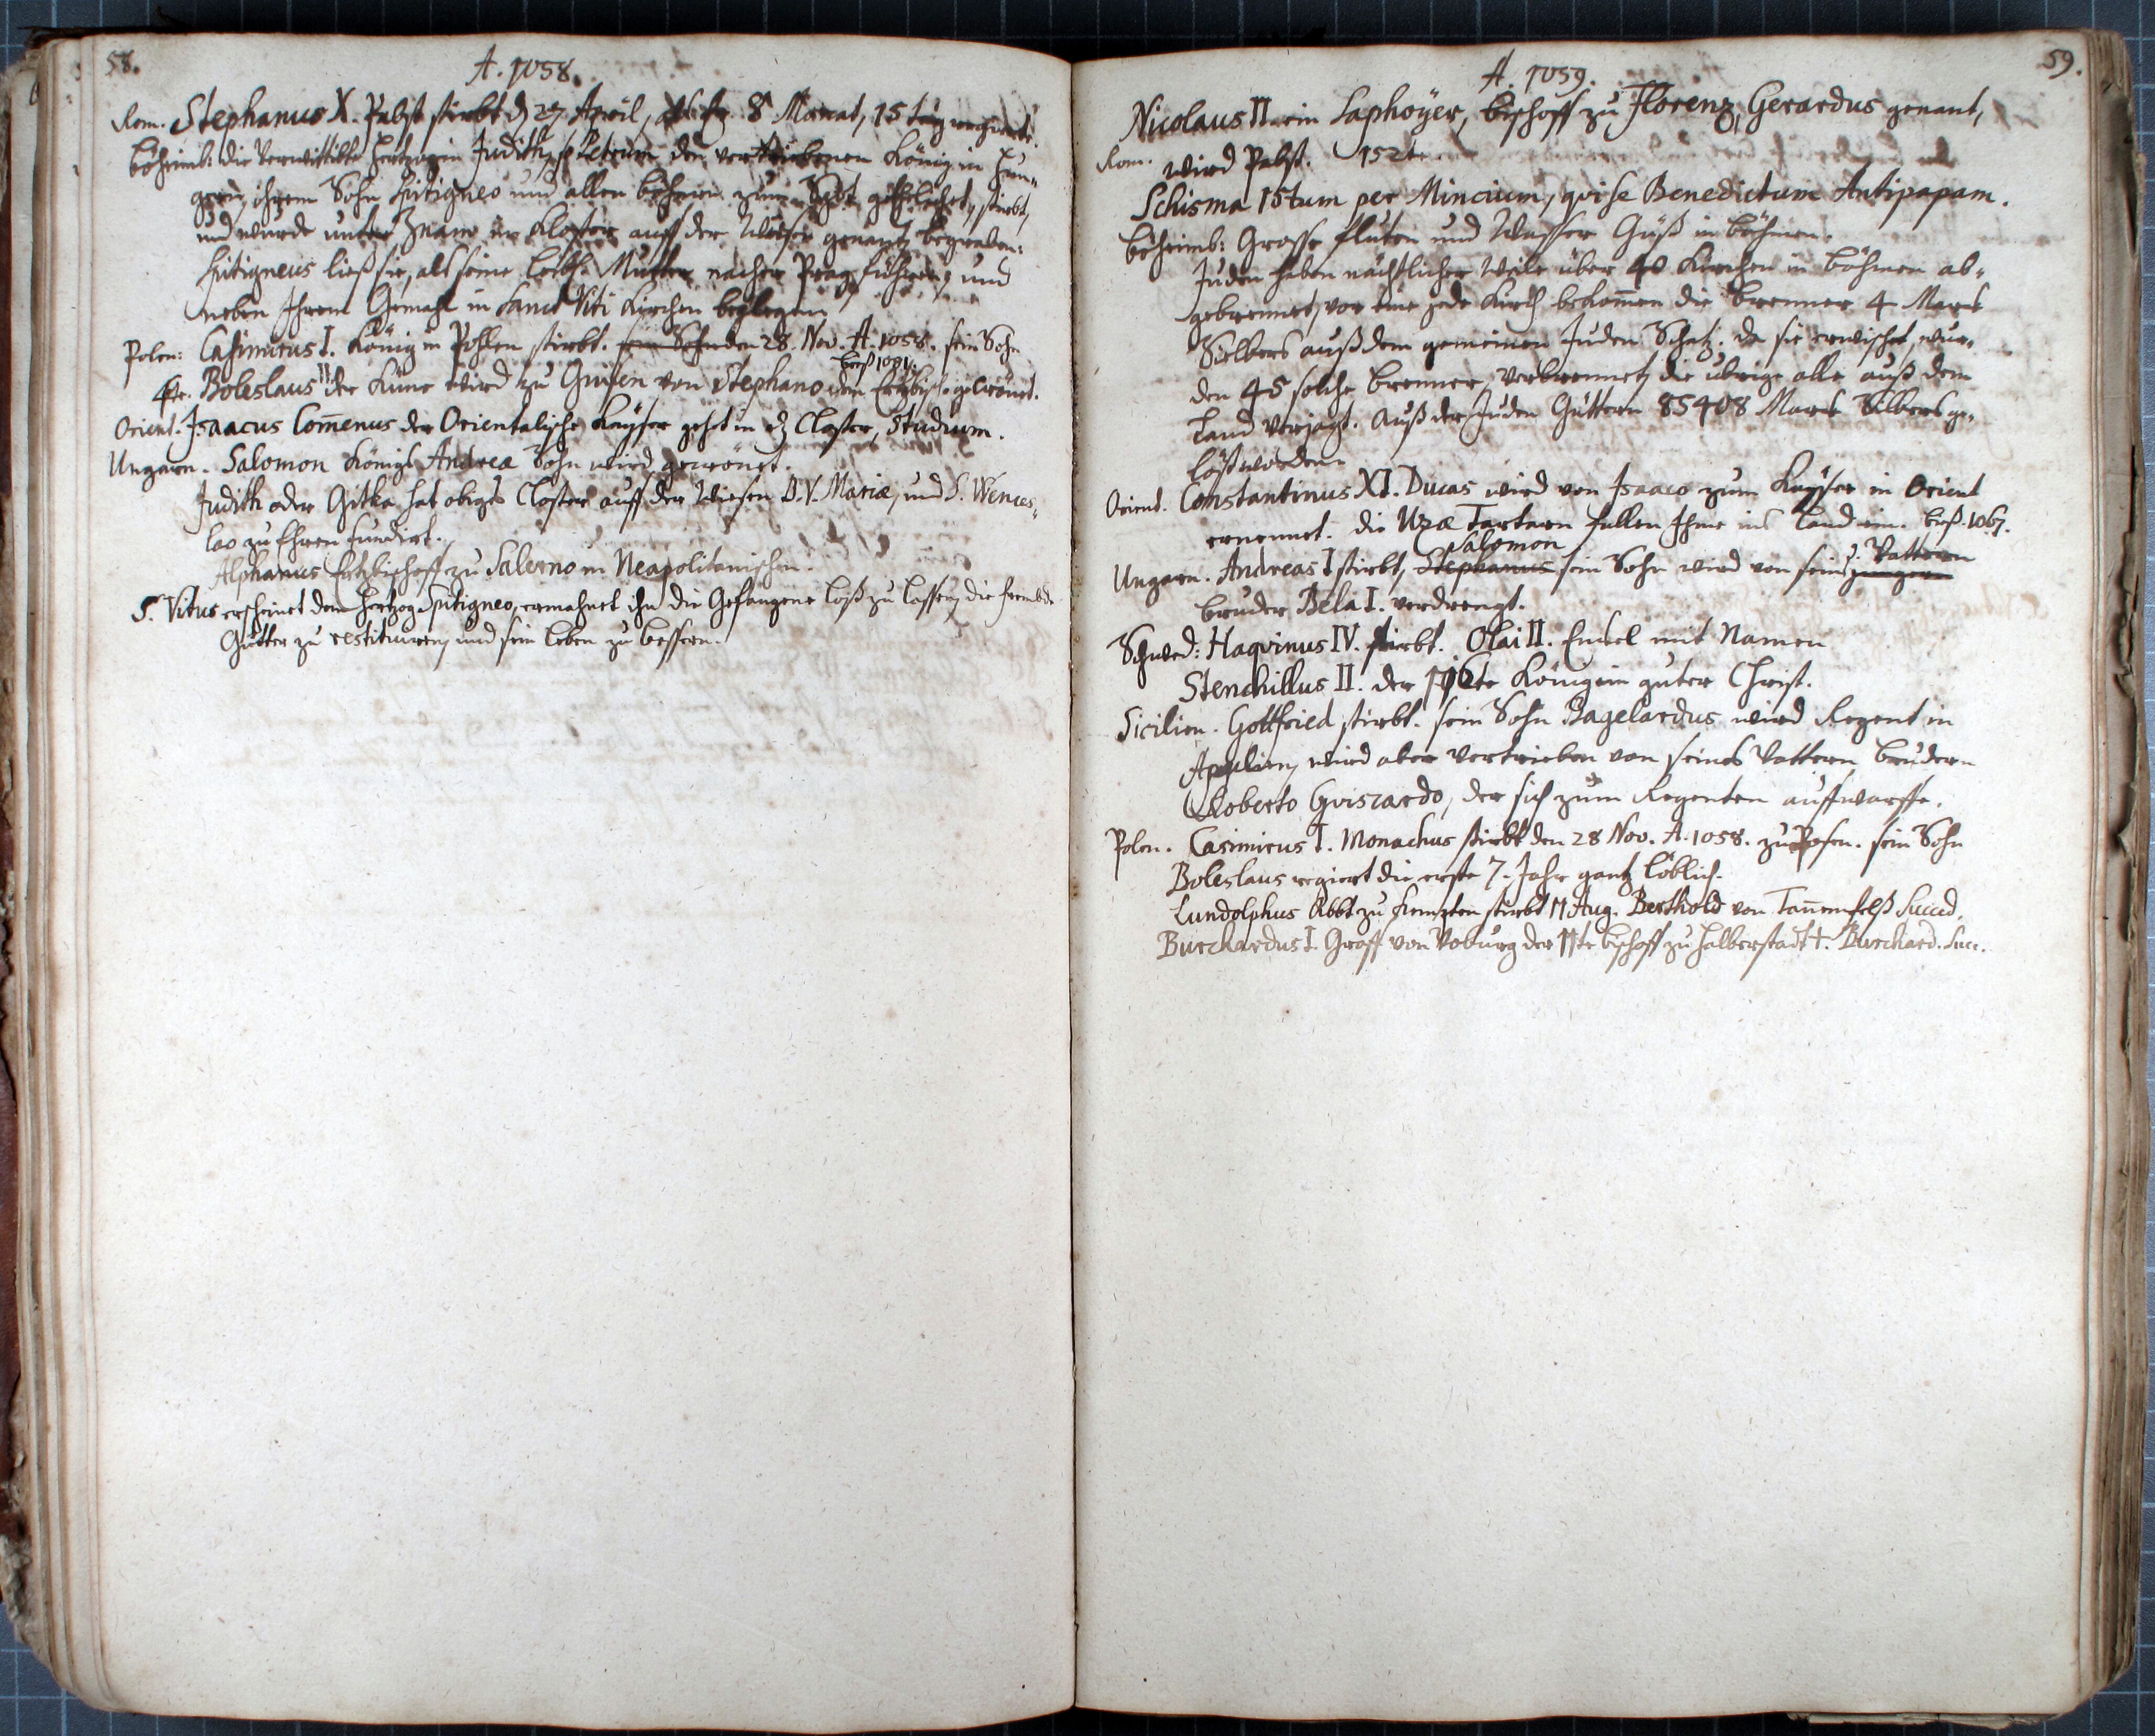 58.
A. 1058.
Rom. Stephanus X. Pabst stirbt d 29 April, als Er 8 Monat, 15 tag regiert.
Böheimb: die verwittibte Hertzogin Judith, so Petrum den vertriebenen König in Hun-
garn, ihrem Sohn Spitigneo und allen Böhmen zum Spot geehlichet, stirbt,
und wurde unter Znaim im Kloster auff der Wiesen genant begraben:
Spitigneus ließ sie, als seine leibl. Mutter nacher Prag führen, und
neben Ihrem Gemahl in Sanct Viti Kirchen beylegen
Polen: Casimirus I. König in Pohlen stirbt. sein Sohn den 28. Nov. A. 1058. sein Sohn
biß 1081.
4te. Boleslaus II der Küne wird zu Gnisen von Stephano dem Ertzbisch. gekrönet.
Orient. Isaacus Com̄enus der Orientalische Kaÿser gehet in dz Closter, Studium.
Ungarn. Salomon Königs Andreæ Sohn wird gecrönet.
Judith oder Gitka hat obiges Closter auff der Wiesen B. V. Mariæ, und S. Wences-
lao zu Ehren fundirt.
Alphanus Ertzbischoff zu Salerno in Neapolitanischen.
S. Vitus erscheinet dem Hertzog Spitigneo, ermahnet ihn die Gefangene loß zu lassen, die frembde
Gütter zu restituiren, und sein leben zu bessern.
59.
A. 1059.
Nicolaus II. ein Saphoÿer, bischoff zu Florenz, Gerardus genant,
Rom. wird Pabst. 152te.
Schisma 15tum per Mincium, qvise Benedictum Antipapam.
Böheimb: Grosse fluten und Wasser Güß in Böhmen.
Juden haben nächtlicher Weile über 40 Kirchen in Böhmen ab-
gebrennet, vor eine jede Kirch bekom̄en die brenner 4 Marck
Sielbers auß dem gemeinen Juden Schatz. da sie erwischet, wur-
den 45 solche brenner, verbrennet, die übrige alle auß dem
Land verjagt. Auß der Juden Güttern 85408 Marck Silbers ge-
löst worden.
Orient. Constantinus XI. Ducas wird von Isaaco zum Kaÿser in Orient
ernennet. die Uzæ Tartarn fallen Ihme ins Land ein. biß. 1067.
Salomon
Ungarn. Andreas I stirbt, Stephanus sein Sohn wird von seins jüngern Vattern
bruder Bela I. verdrengt.
Schwed: Haqvinus IV. stirbt. Olai II. Enckel mit Namen
Stenchillus II. der 106te König ein guter Christ.
Sicilien. Gottfried stirbt. sein Sohn Bagelardus wird Regent in
Apulien, wird aber vertrieben von seines Vattern brudern
Roberto Gviscardo, der sich zum Regenten auffwarffe.
Polen. Casimirus I. Monachus stirbt den 28 Nov. A. 1058. zu Posen. sein Sohn
Boleslaus regiert die erste 7. Jahr gantz löblich.
Lundolphus Abbt zu Kempten stirbt 11 Aug. Berthold von Tan̄enfelß Succed.
Burchardus I. Graff von Voburg der 11te bischoff zu Halberstadt †. Burchard. Succ.